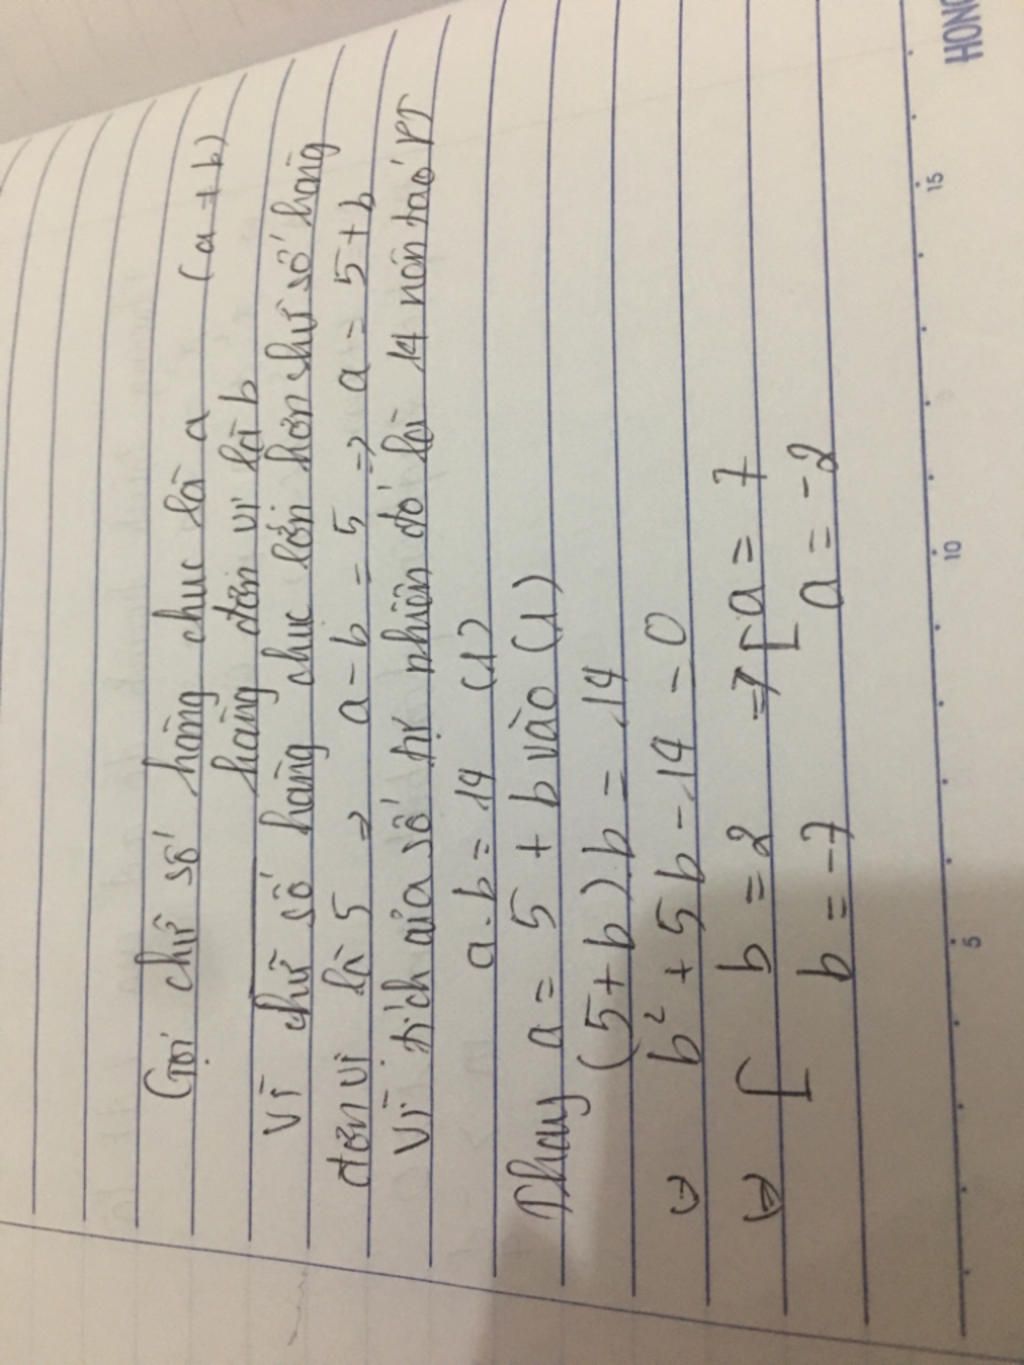 Gọi chữ số hàng chục là a (a+b)
hàng đơn vị là b
Vì chữ số hàng chục lớn hơn chữ số hàng
đơn vị là 5 => a-b = 5 => a = 5+b
Vì tích của số tự nhiên đó là 14 nên ta có PT
a.b = 14 (1)
Thay a = 5 + b vào (1)
(5+b).b = 14
⇔ b² + 5b - 14 = 0
⇔ [ b = 2 => [ a = 7
b = -7 a = -2
5 10 15
HONG